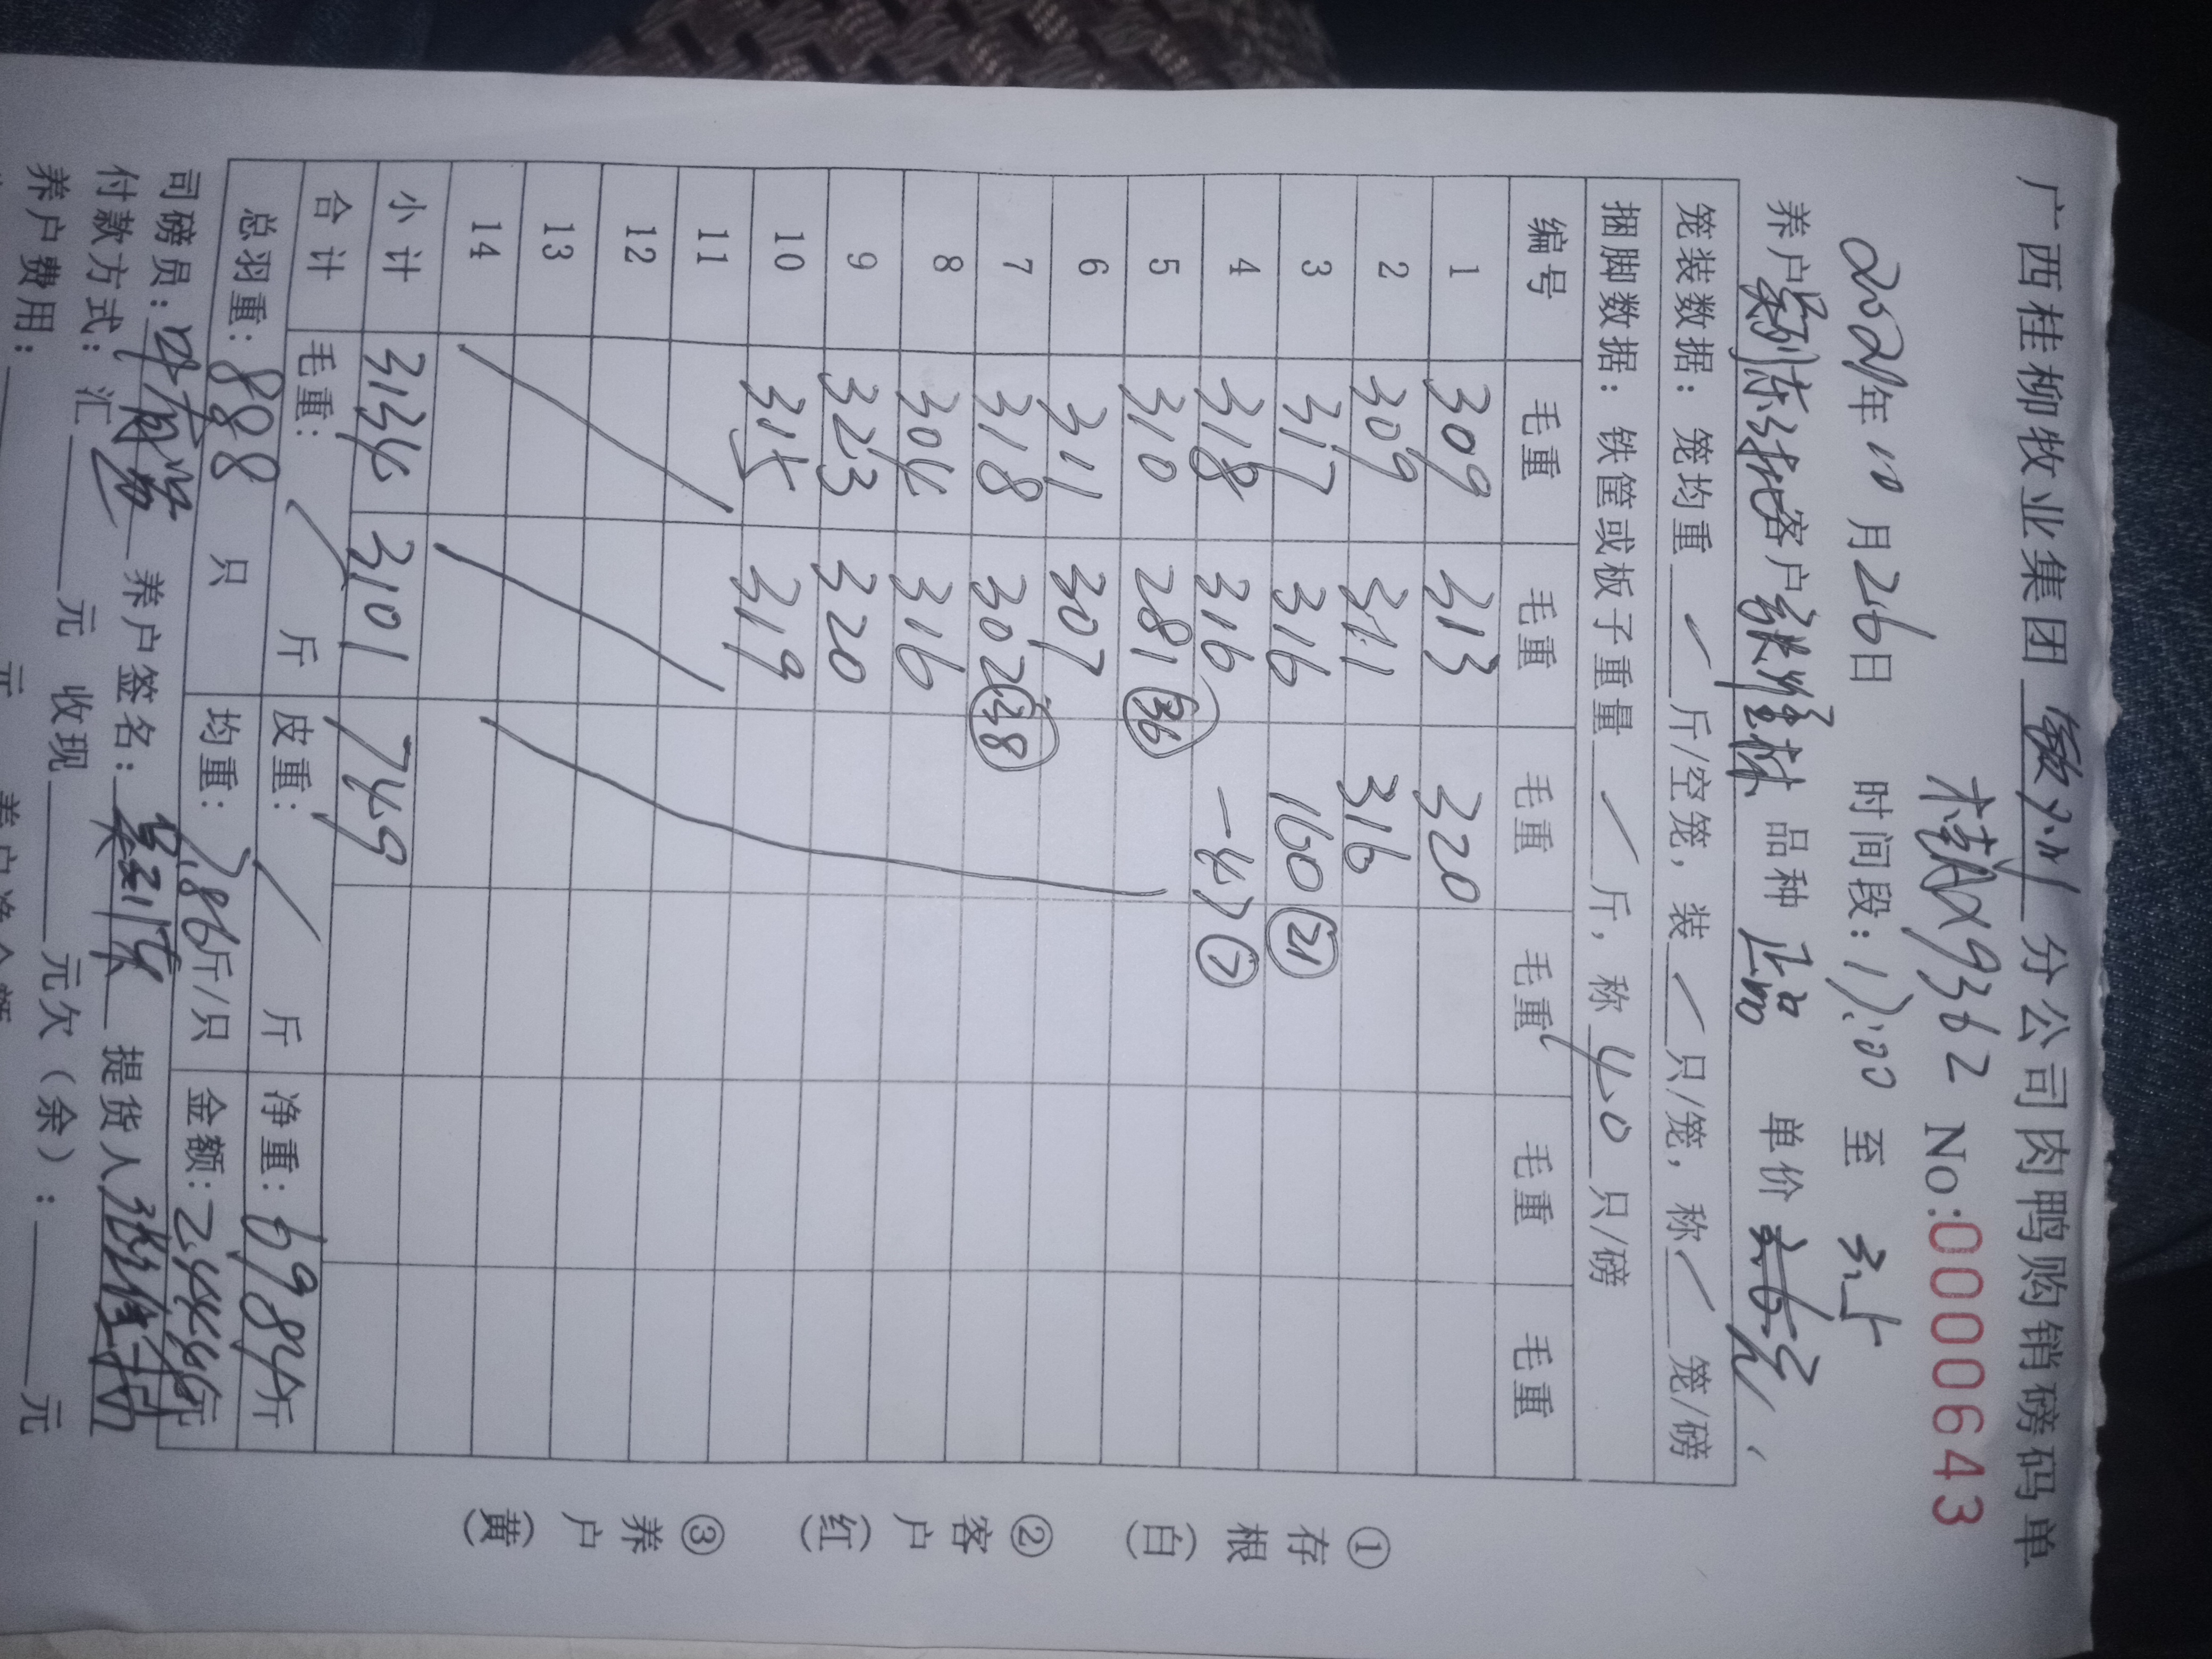 广西桂柳牧业集团 分公司肉鸭购销磅码单
桂 9362 No:0000643
年10月26日 时间段: 17:00 至
养户 客户 品种 正品 单价
笼装数据: 笼均重 / 斤/空笼, 装 / 只/笼, 称 / 笼/磅
捆脚数据: 铁筐或板子重量 / 斤, 称 40 只/磅
编号 毛重 毛重 毛重 毛重 毛重 毛重
1 309 313 320
2 309 311 316
3 317 316 160 (21)
4 318 316 -47 (7)
5 310 281 (36)
6 311 307
7 318 302 (38)
8 304 316
9 323 320
10 315 319
11
12
13
14
小计 3134 3101 749
合计 毛重: / 斤 皮重: / 斤 净重: 6984斤
总羽重: 888 只 均重: 7.86斤/只 金额: 元
司磅员: 养户签名: 提货人
付款方式: 汇 元 收现 元欠(余): 元
养户费用:
①存根(白) ②客户(红) ③养户(黄)